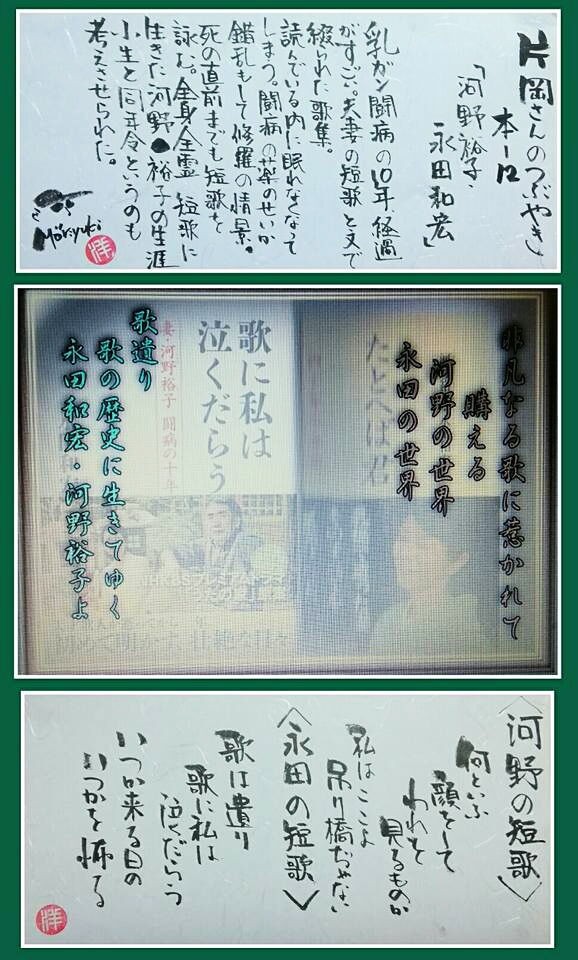 片岡さんのつぶやき
本一口
「河野裕子・
永田和宏」
乳ガン闘病の10年、経過
がすごい。夫妻の短歌と文で
綴られた歌集。
読んでいる内に眠れなくなって
しまう。闘病の薬のせいか
錯乱もして修羅の情景。
死の直前までも短歌を
詠む。全身全霊 短歌に
生きた河野裕子の生涯
小生と同年令というのも
考えさせられた。
Moriyuki
洋
非凡なる歌に惹かれて
購える
河野の世界
永田の世界
歌遺り
歌の歴史に生きてゆく
永田和宏・河野裕子よ
たとへば君
歌に私は
泣くだらう
妻・河野裕子 闘病の十年
初めて明かす、壮絶な日々
〈河野の短歌〉
何といふ
顔をして
われを
見るものか
私はここよ
吊り橋ぢゃない
〈永田の短歌〉
歌は遺り
歌に私は
泣くだらう
いつか来る日の
いつかを怖る
洋